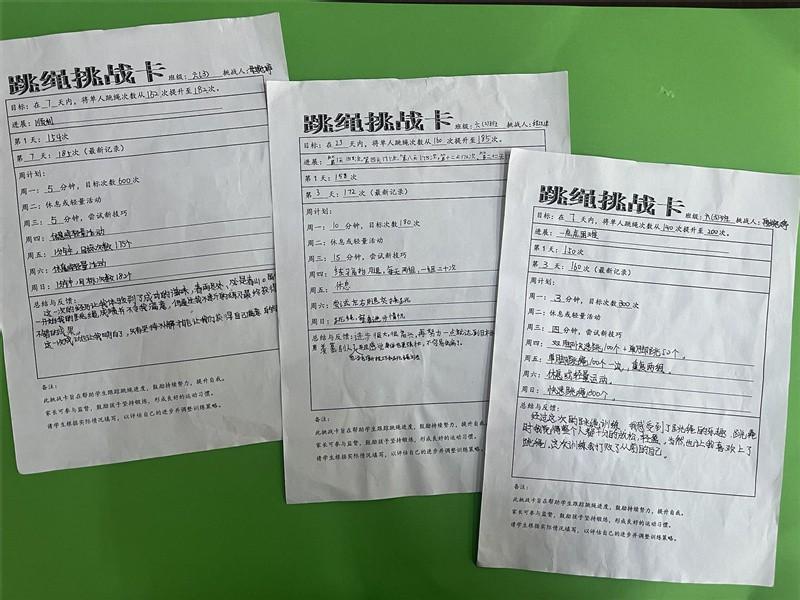 跳绳挑战卡 班级：六(3) 挑战人：
目标：在 7 天内，将单人跳绳次数从 152 次提升至 182 次。
进展：顺利
第1天：154次
第 7 天：185次（最新记录）
周计划：
周一：5 分钟，目标次数 600 次
周二：休息或轻量活动
周三：5 分钟，尝试新技巧
周四：休息或轻量活动
周五：1分钟，目标次数175个
周六：休息或轻量活动
周日：1分钟，目标次数182个
总结与反馈：
这一次的经历让我体验到了成功的滋味，
不错的成果。
备注：
此挑战卡旨在帮助学生跟踪跳绳进度，鼓励持续努力，提升自我。
家长可参与监督，鼓励孩子坚持锻炼，形成良好的运动习惯。
请学生根据实际情况填写，以评估自己的进步并调整训练策略。
跳绳挑战卡 班级：六(3)班 挑战人：
目标：在 23 天内，将单人跳绳次数从 160 次提升至 185 次。
进展：
第1天：158次
第 3 天：172 次（最新记录）
周计划：
周一：10 分钟，目标次数 180 次
周二：休息或轻量活动
周三：15 分钟，尝试新技巧
周四：每天两组，一组二十次
周五：休息
周六：
周日：跳绳，
总结与反馈：进步很大，很高兴，再努力一点就达到目标
备注：
此挑战卡旨在帮助学生跟踪跳绳进度，鼓励持续努力，提升自我。
家长可参与监督，鼓励孩子坚持锻炼，形成良好的运动习惯。
请学生根据实际情况填写，以评估自己的进步并调整训练策略。
跳绳挑战卡 班级：六(3)班 挑战人：
目标：在 7 天内，将单人跳绳次数从 140 次提升至 200 次。
进展：一点点困难
第1天：150次
第 3 天：160 次（最新记录）
周计划：
周一：3 分钟，目标次数 300 次
周二：休息或轻量活动
周三：四 分钟，尝试新技巧
周四：双脚快速跳100个+单脚跳50个。
周五：单脚跳绳100个一次，重复两次。
周六：休息或轻量运动。
周日：快速跳绳1000个
总结与反馈：
经过这次的跳绳训练，我感受到了跳绳的乐趣，跳绳
时我觉得整个人都十分的放松，轻盈，当然也让我喜欢上了
跳绳，这次训练我打败了从前的自己。
备注：
此挑战卡旨在帮助学生跟踪跳绳进度，鼓励持续努力，提升自我。
家长可参与监督，鼓励孩子坚持锻炼，形成良好的运动习惯。
请学生根据实际情况填写，以评估自己的进步并调整训练策略。